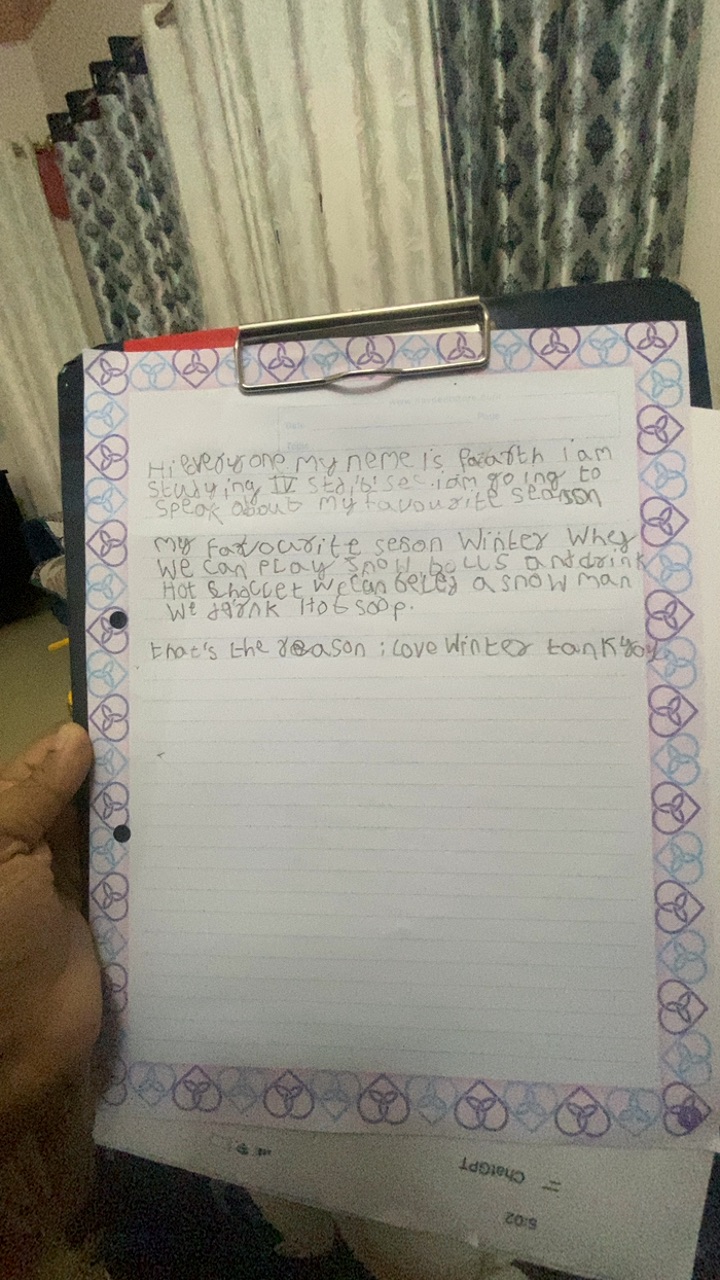 Date Page
Hi everyone my neme is i am
studying IV std,'b' sec. i am going to
speak about my favourite season
my favourite seson Winter Whey
We can play snow bolls and drink
Hot a snow man
We Hot soop.
that's the reason i love Winter tank you
ChatGPT
5:02